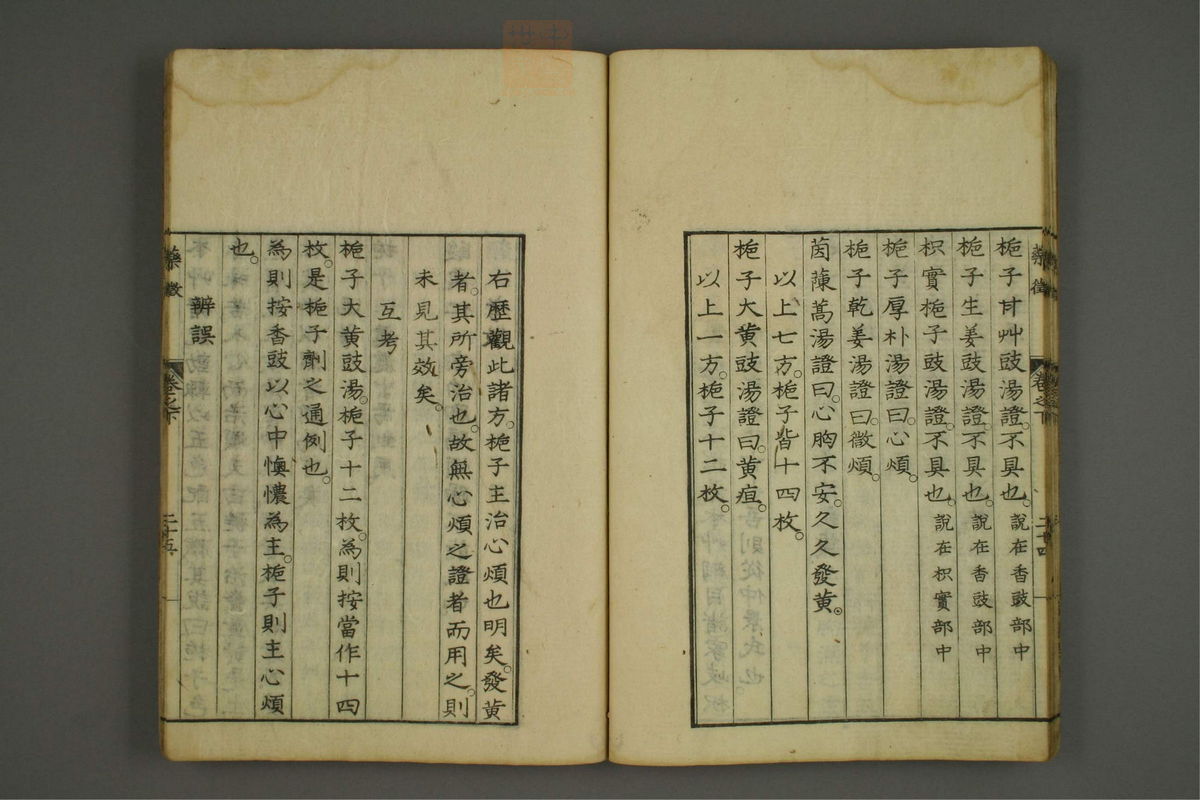 藥徵
卷之下
二十四
梔子甘艸豉湯證不具也。說在香豉部中
梔子生姜豉湯證不具也。說在香豉部中
枳實梔子豉湯證不具也。說在枳實部中
梔子厚朴湯證曰。心煩。
梔子乾姜湯證曰微煩。
茵蔯蒿湯證曰。心胸不安。久久發黃。
以上七方。梔子皆十四枚。
梔子大黃豉湯證曰。黃疸。
以上一方。梔子十二枚。
右歷觀此諸方。梔子主治心煩也明矣。發黃
者。其所旁治也。故無心煩之證者而用之。則
未見其效矣。
互考
梔子大黃豉湯。梔子十二枚。為則按當作十四
枚。是梔子劑之通例也。
為則按香豉以心中懊憹為主。梔子則主心煩
也。
辨誤
藥徵
卷之下
二十五